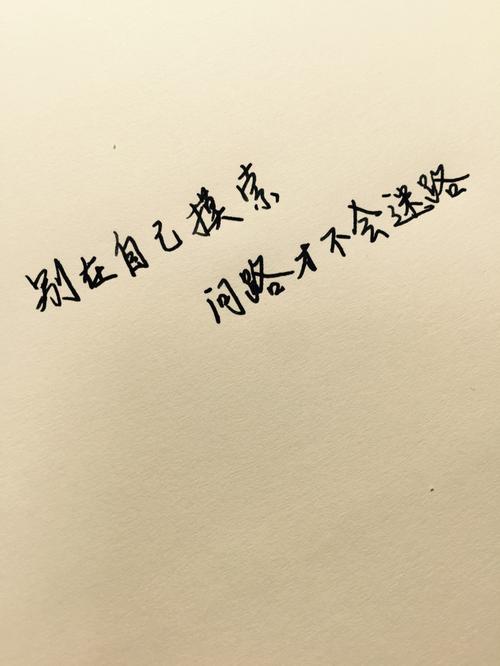 别在自己摸索
问路才不会迷路